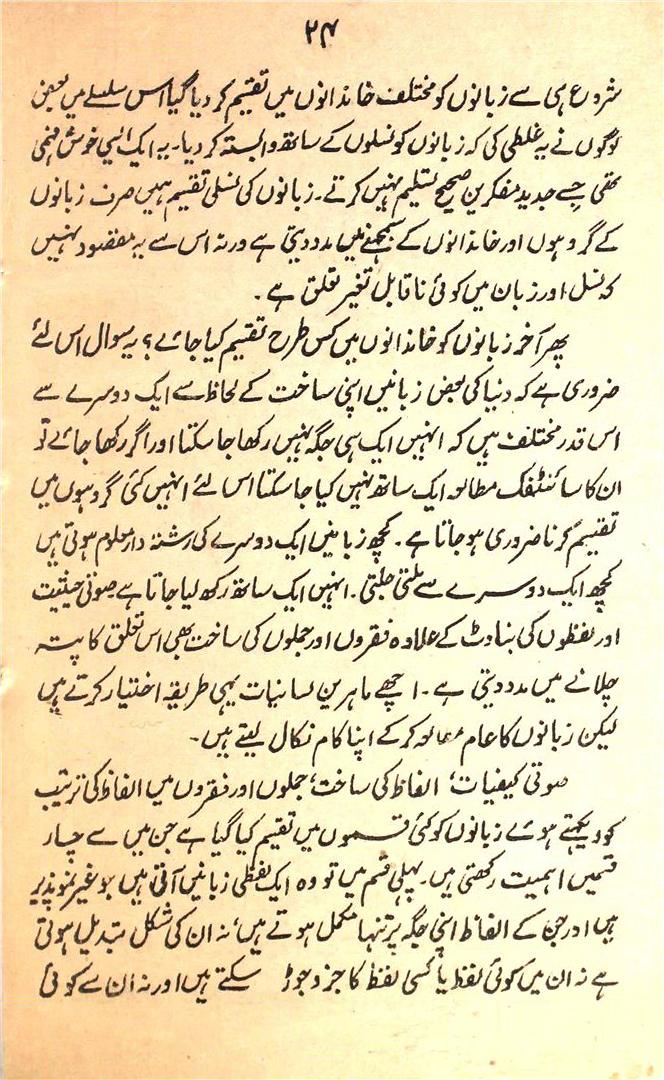 ۲۴
شروع ہی سے زبانوں کو مختلف خاندانوں میں تقسیم کر دیا گیا اس سلسلے میں بعض
لوگوں نے یہ غلطی کی کہ زبانوں کو نسلوں کے ساتھ وابستہ کر دیا۔ یہ ایک ایسی خوش فہمی
تھی جسے جدید مفکرین صحیح تسلیم نہیں کرتے۔ زبانوں کی نسلی تقسیم ہمیں صرف زبانوں
کے گروہوں اور خاندانوں کے سمجھنے میں مدد دیتی ہے ورنہ اس سے یہ مقصود نہیں
کہ نسل اور زبان میں کوئی ناقابل تغیر تعلق ہے۔
پھر آخر زبانوں کو خاندانوں میں کس طرح تقسیم کیا جائے؟ یہ سوال اس لئے
ضروری ہے کہ دنیا کی بعض زبانیں اپنی ساخت کے لحاظ سے ایک دوسرے سے
اس قدر مختلف ہیں کہ انہیں ایک ہی جگہ نہیں رکھا جا سکتا اور اگر رکھا جائے تو
ان کا سائنٹفک مطالعہ ایک ساتھ نہیں کیا جا سکتا اس لئے انہیں کئی گروہوں میں
تقسیم کرنا ضروری ہو جاتا ہے۔ کچھ زبانیں ایک دوسرے کی رشتہ دار معلوم ہوتی ہیں
کچھ ایک دوسرے سے ملتی جلتی۔ انہیں ایک ساتھ رکھ لیا جاتا ہے صوتی حیثیت
اور لفظوں کی بناوٹ کے علاوہ فقروں اور جملوں کی ساخت بھی اس تعلق کا پتہ
چلانے میں مدد دیتی ہے۔ اچھے ماہرین لسانیات یہی طریقہ اختیار کرتے ہیں
لیکن زبانوں کا عام مطالعہ کر کے اپنا کام نکال لیتے ہیں۔
صوتی کیفیات، الفاظ کی ساخت، جملوں اور فقروں میں الفاظ کی ترتیب
کو دیکھتے ہوئے زبانوں کو کئی قسموں میں تقسیم کیا گیا ہے جن میں سے چار
قسمیں اہمیت رکھتی ہیں۔ پہلی قسم میں تو وہ ایک لفظی زبانیں آتی ہیں جو غیر نمو پذیر
ہیں اور جن کے الفاظ اپنی جگہ پر تنہا مکمل ہوتے ہیں، نہ ان کی شکل تبدیل ہوتی
ہے نہ ان میں کوئی لفظ یا کسی لفظ کا جزو جوڑ سکتے ہیں اور نہ ان سے کوئی